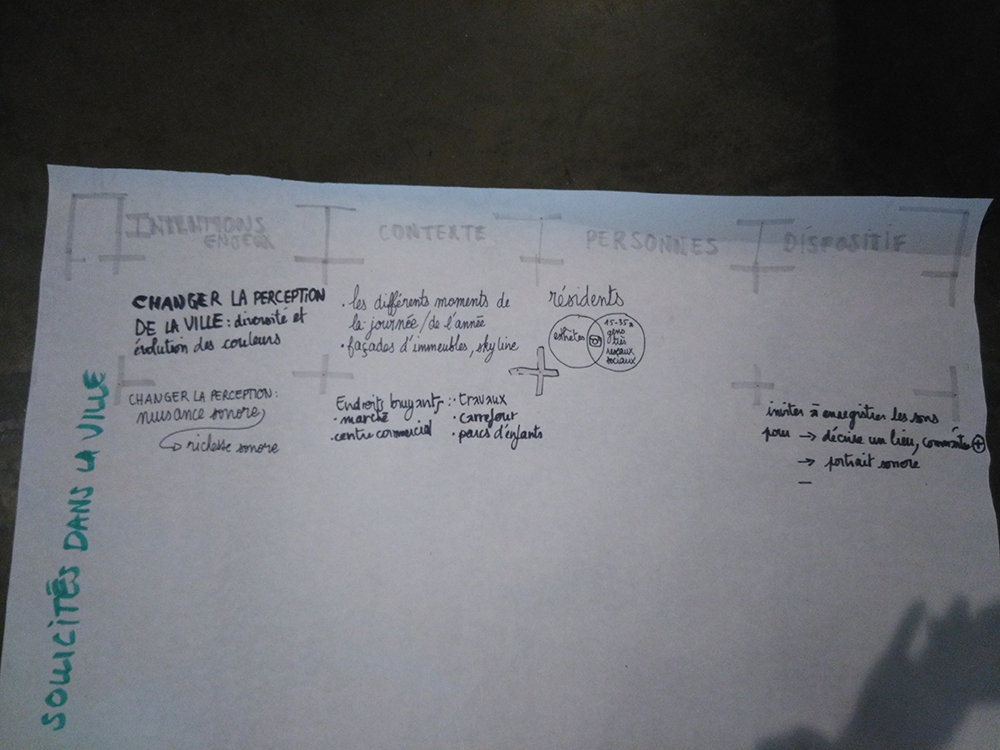 INTENTIONS
ENJEUX
CONTEXTE
PERSONNES
DISPOSITIF
CHANGER LA PERCEPTION
DE LA VILLE : diversité et
évolution des couleurs
· les différents moments de
la journée / de l'année
· façades d'immeubles, skyline
résidents
esthètes
15-35 a
gens
très
réseaux
sociaux
CHANGER LA PERCEPTION :
nuisance sonore,
→ richesse sonore
Endroits bruyants : · travaux
· marché · carrefour
· centre commercial · parcs d'enfants
inviter à enregistrer les sons
pour → décrire un lieu, commenter +
→ portrait sonore
—
SOLLICITÉS DANS LA VILLE